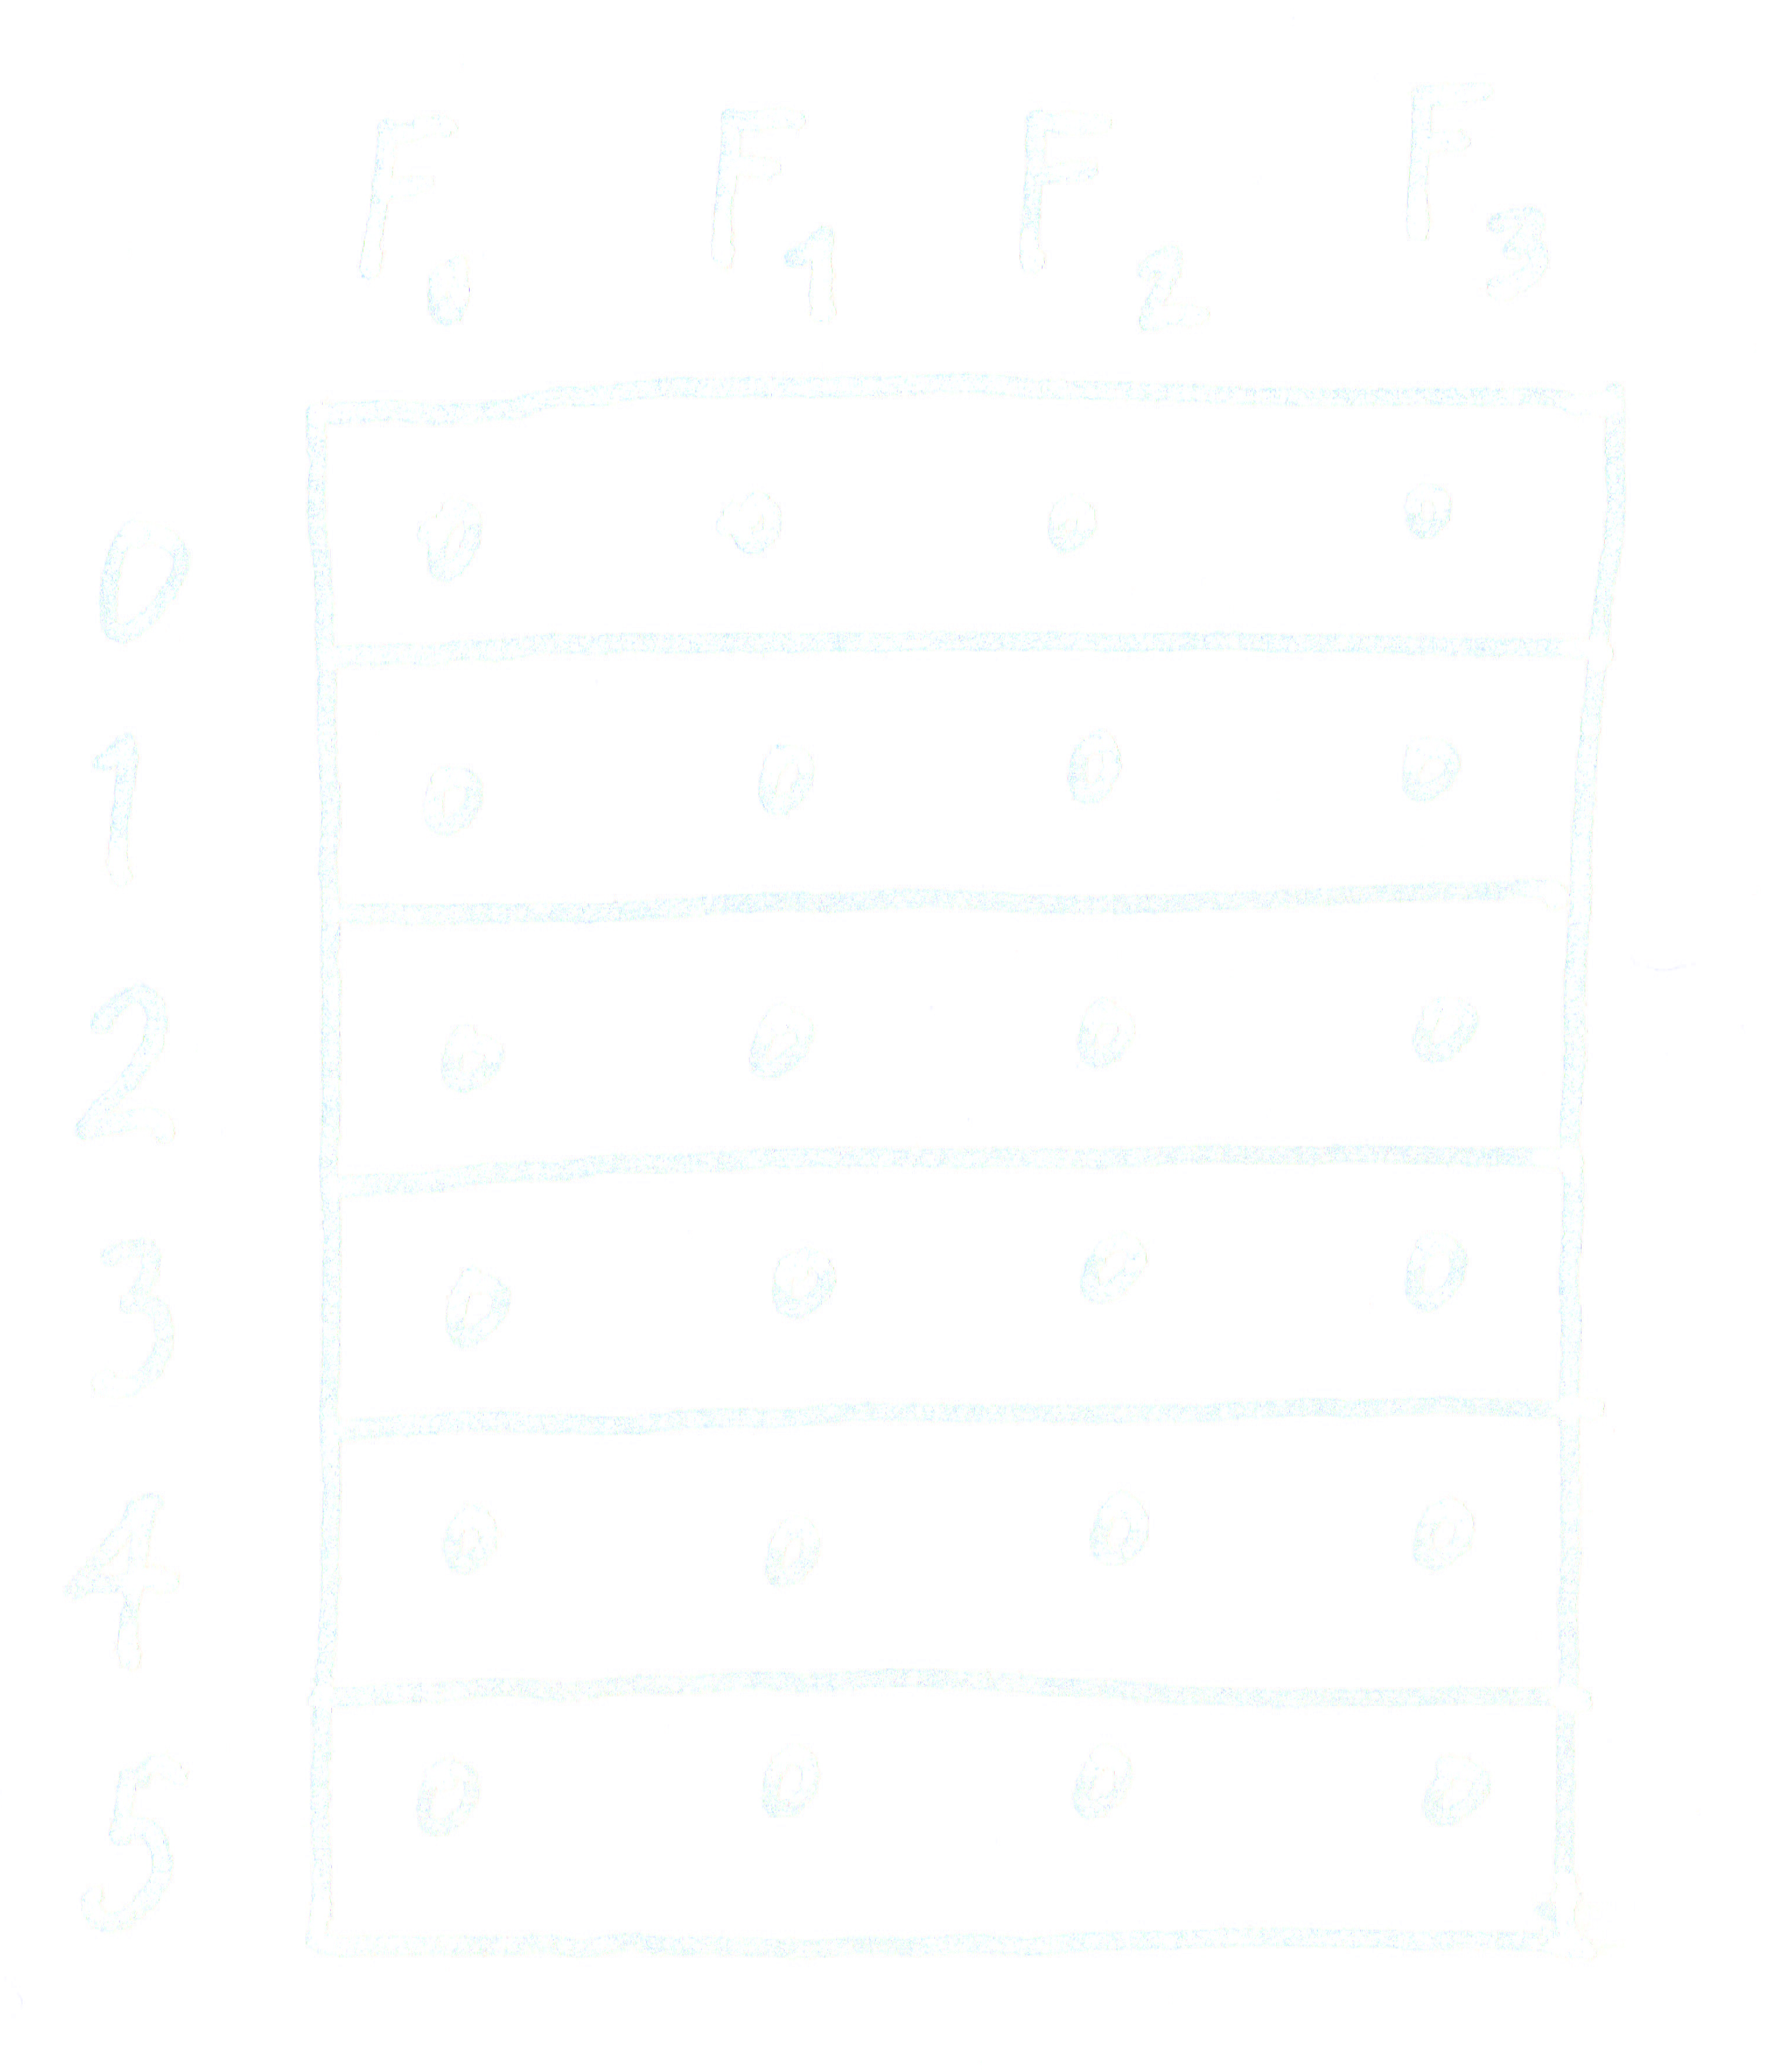 F0 F1 F2 F3
0 0 0 0 0
1 0 0 0 0
2 0 0 0 0
3 0 0 0 0
4 0 0 0 0
5 0 0 0 0